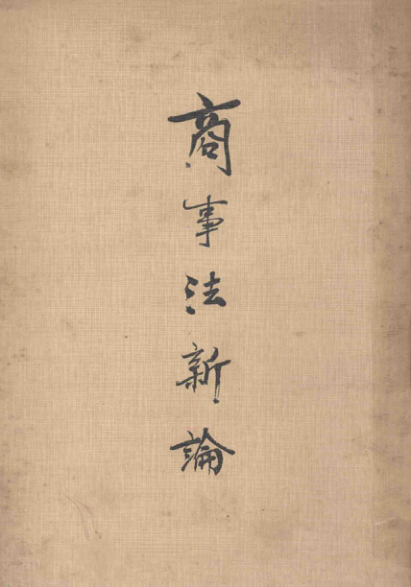 商事法新論